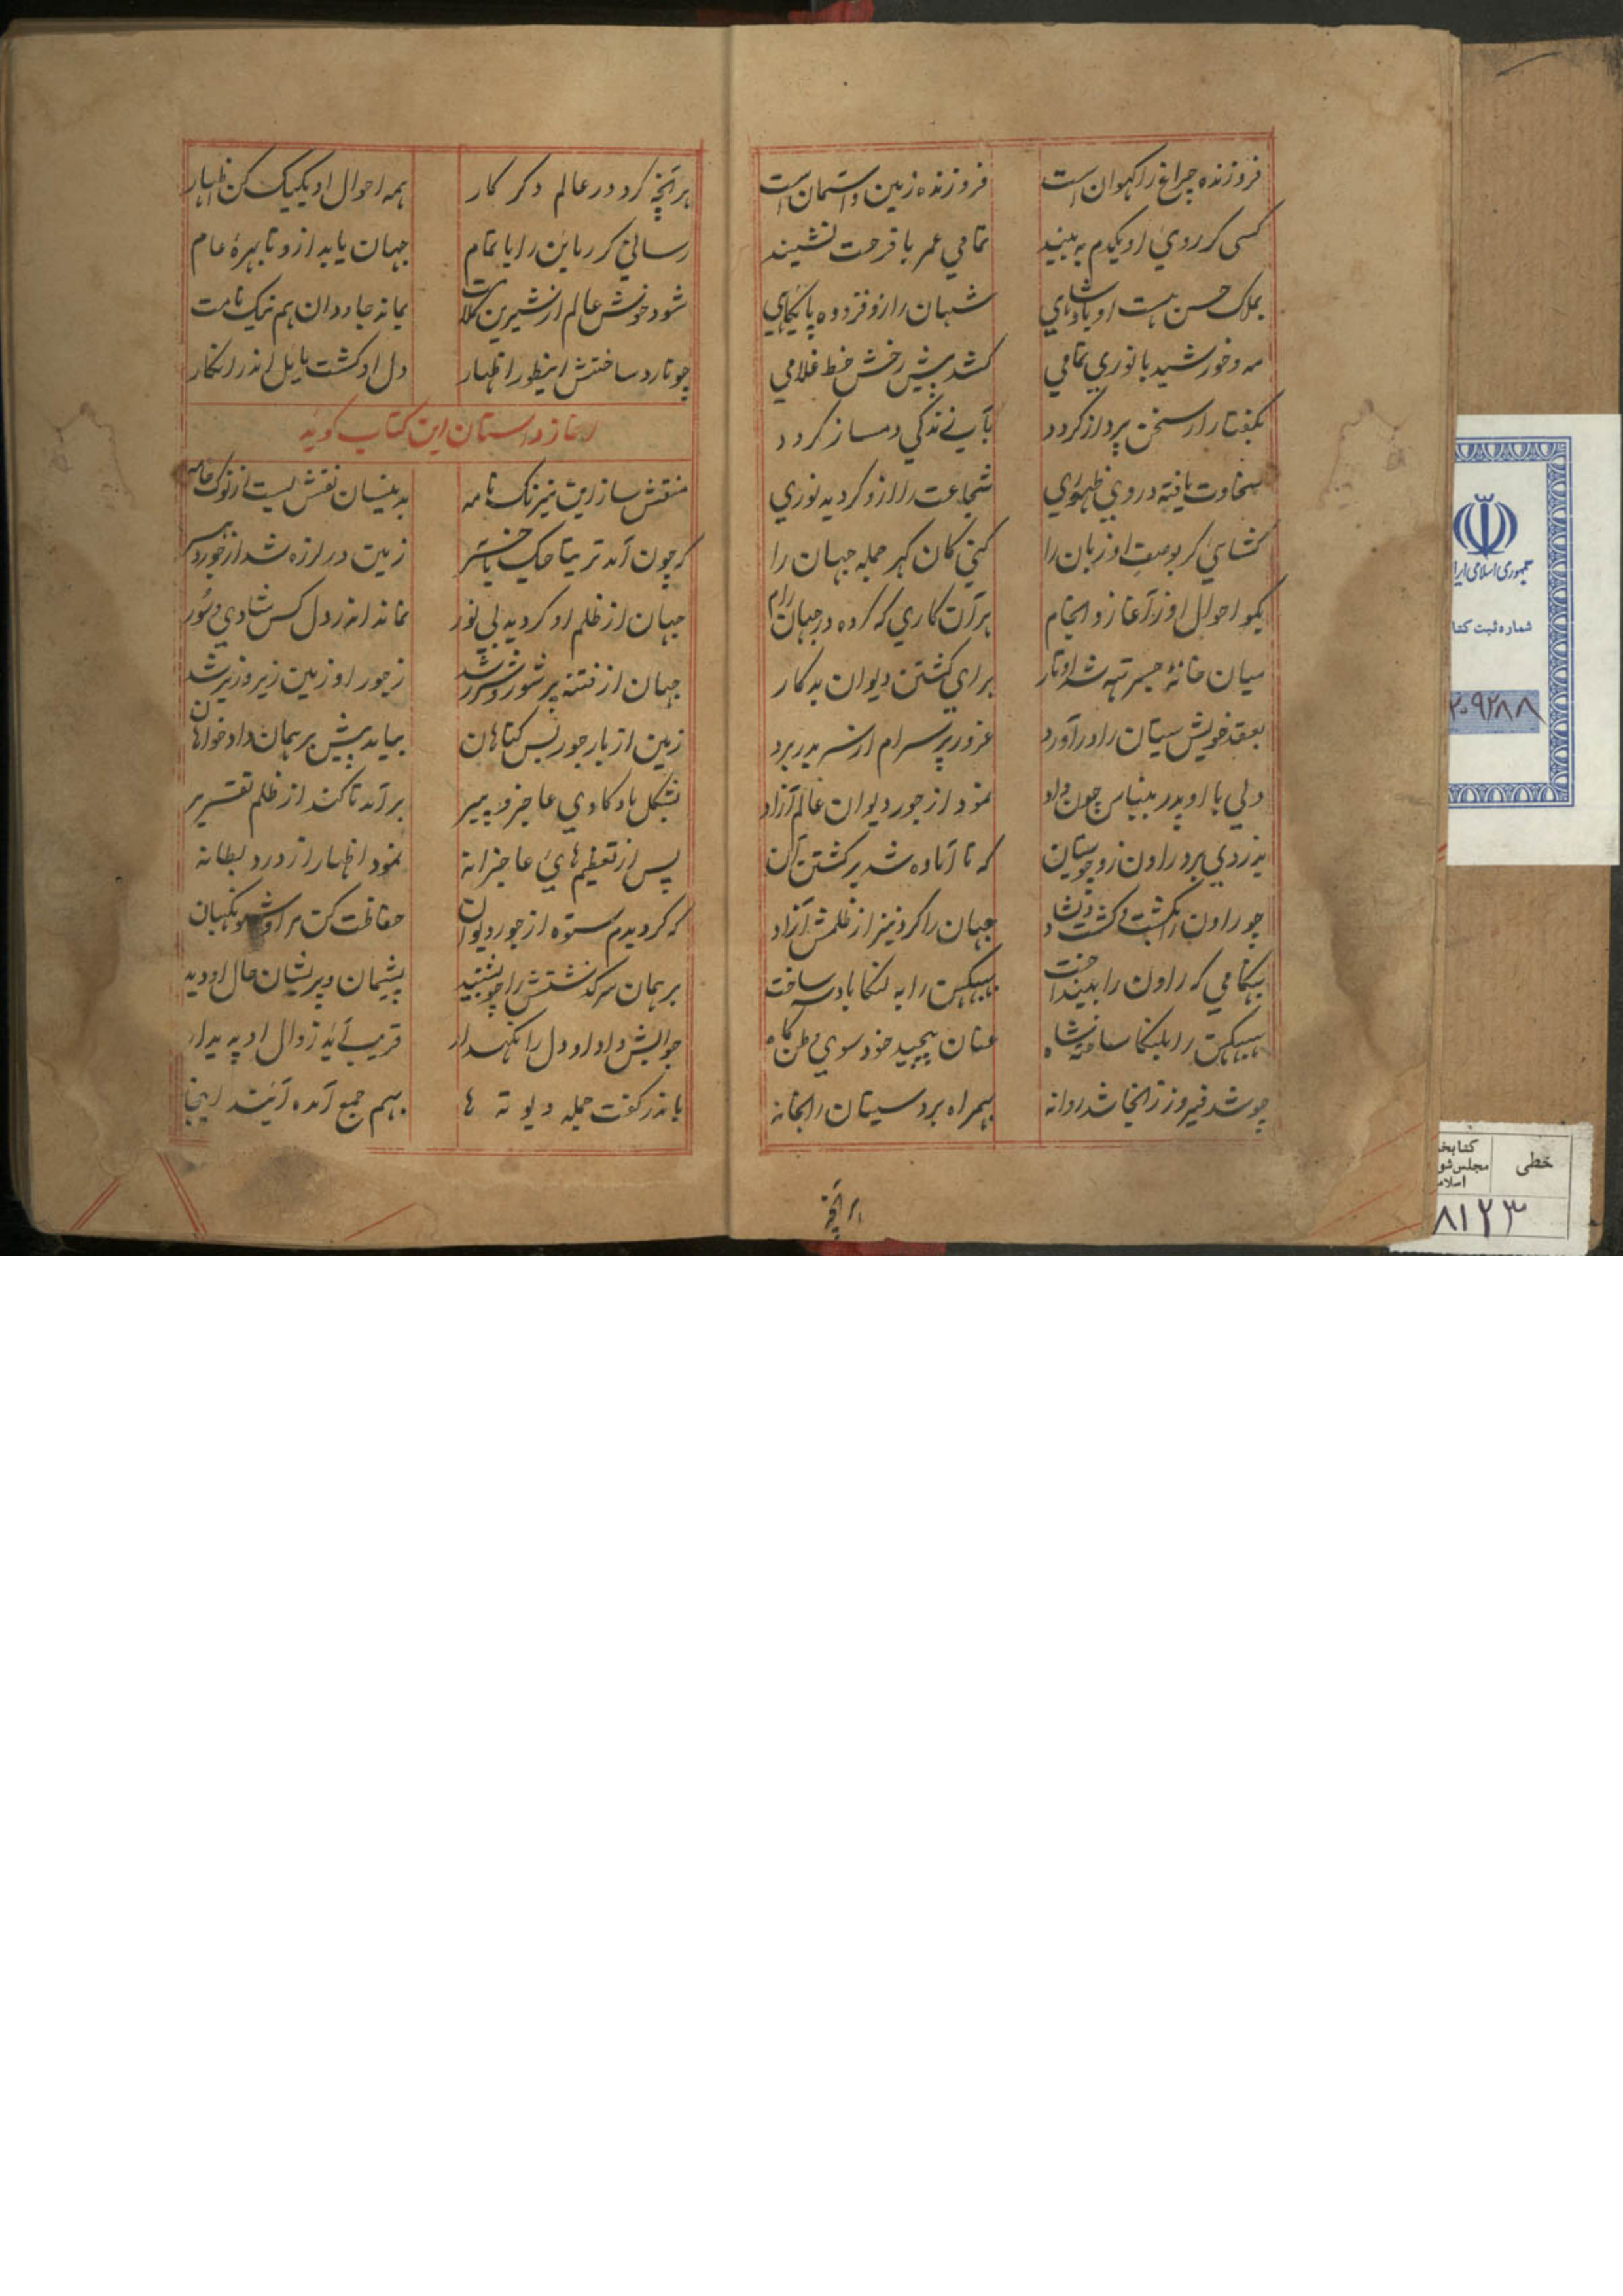 فروزنده چراغ راکهوان است فروزنده زمین و آسمان است
کسی کر روی او یکدم به بیند تمامی عمر با فرحت نشیند
بملک حسن هست او پادشاهی شهان را زو فزوده پایگاهی
مه و خورشید با نوری تمامی کشد پیش رخش خط غلامی
بگفتار ار سخن پرداز گردد بآب زندگی دمساز گردد
سخاوت یافته در وی ظهوری شجاعت را ازو گردیده نوری
کشایی گر بوصف او زبان را کنی کان گهر جمله جهان را
بگو احوال او ز آغاز و انجام هر آن کاری که کرده در جهان رام
میان خانهٔ جسرته شد اوتار برای کشتن دیوان بدکار
بعقد خویش سیتان را در آورد غرور پرسرام از سر بدر برد
ولی با او پدر بنباس چون داد نمود از جور دیوان عالم آزاد
بدزدی برد راون زو چو سیتان که تا آماده شد بر کشتن آن
چو راون را بکشت و گشت دلشاد جهان را کرد نیز از ظلمش آزاد
هنگامی که راون را بینداخت ببیکهن را به لنکا پادشه ساخت
ببیکهن را بلنکا ساخته شاه عنان پیچید خود سوی وطن گاه
چو شد فیروز زانجا شد روانه بهمراه برد سیتان را بخانه
هر آنچه
هر آنچه کرد در عالم دگر کار همه احوال او یکیک کن اظهار
رسانی گر رماین را باتمام جهان یابد ازو تا بهرهٔ عام
شود خوش عالم از شیرین کلامت بماند جاودان هم نیک نامت
چو نارد ساختش اینطور اظهار دل او گشت مایل اندر انکار
آغاز داستان این کتاب گوید
منقش ساز این نیرنگ نامه بدینسان نقش بست از نوک خامه
که چون آمد تریتا جگ زمین در لرزه شد از
جهان از ظلم او گردید بی نور نماند اندر دل کس شادی و سور
جهان از فتنه پر شور و شر شد ز جور او زمین زیر و زبر شد
زمین از بار جور بس گناهان بیامد پیش برهمان دادخواهان
بشکل ماده گاوی عاجز و پیر بر آمد تا کند از ظلم تقریر
پس از تعظیم های عاجزانه نمود اظهار از درد
که گردیدم ستوه از جور دیوان حفاظت کن مرا شو نگهبان
برهمان سرگذشتش را چو بشنید پشیمان و پریشان حال او دید
جوابش داد او دل را نگهدار قریب آید زوال او پدیدار
باندر گفت جمله دیوته ها بهم جمع آمده آیند اینجا
جمهوری اسلامی ایرا
شماره ثبت کتا
۲۰۹۲۸۸
خطی
کتابخ
مجلس شو
اسلامی
۸۱۲۳